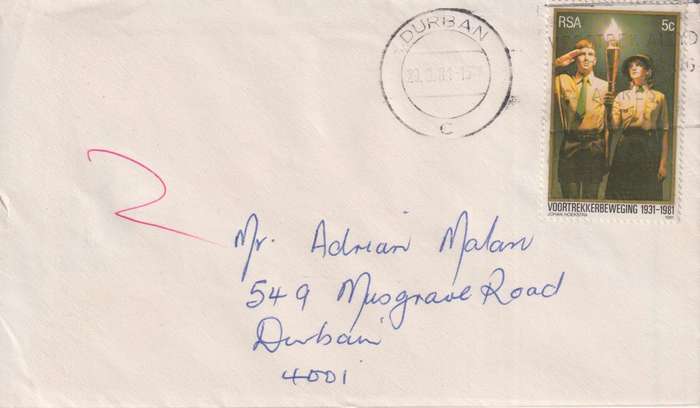 DURBAN
C
RSA 5c
VOORTREKKERBEWEGING 1931-1981
JOHAN HOEKSTRA
Mr. Adrian Malan
549 Musgrave Road
Durban
4001